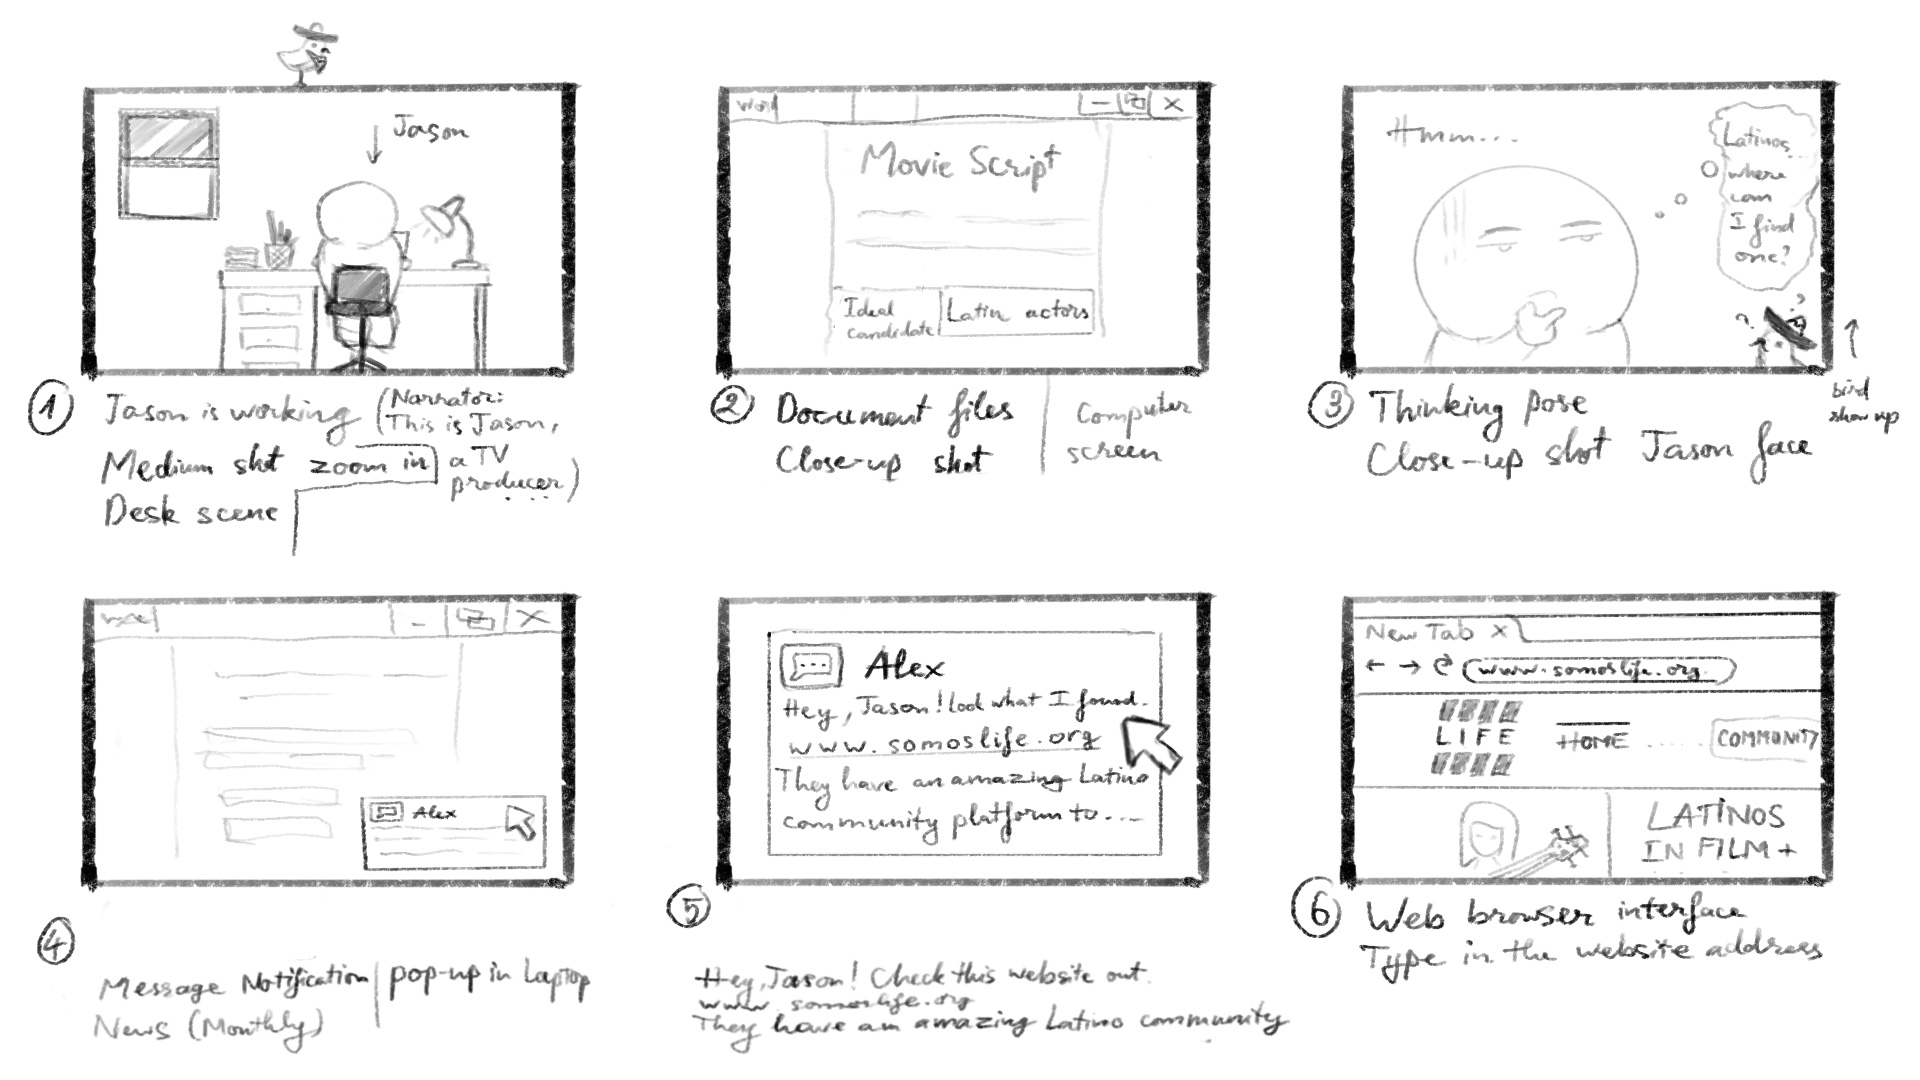 Jason
1 Jason is working
Medium shot zoom in
Desk scene
(Narrator:
This is Jason,
a TV
producer)
...
word
Movie Script
Ideal
candidate
Latin actors
2 Document files
Close-up shot
Computer
screen
Hmm...
Latinos..
where
can
I find
one?
? ?
bird
show up
3 Thinking pose
Close-up shot Jason face
Alex
4
Message Notification
News (Monthly)
pop-up in Laptop
Alex
Hey, Jason! look what I found.
www.somoslife.org
They have an amazing Latino
community platform to....
5
Hey, Jason! Check this website out.
www.somoslife.org
They have an amazing Latino community
New Tab X
www.somoslife.org
LIFE
HOME ..... COMMUNITY
LATINOS
IN FILM +
6 Web browser interface
Type in the website address